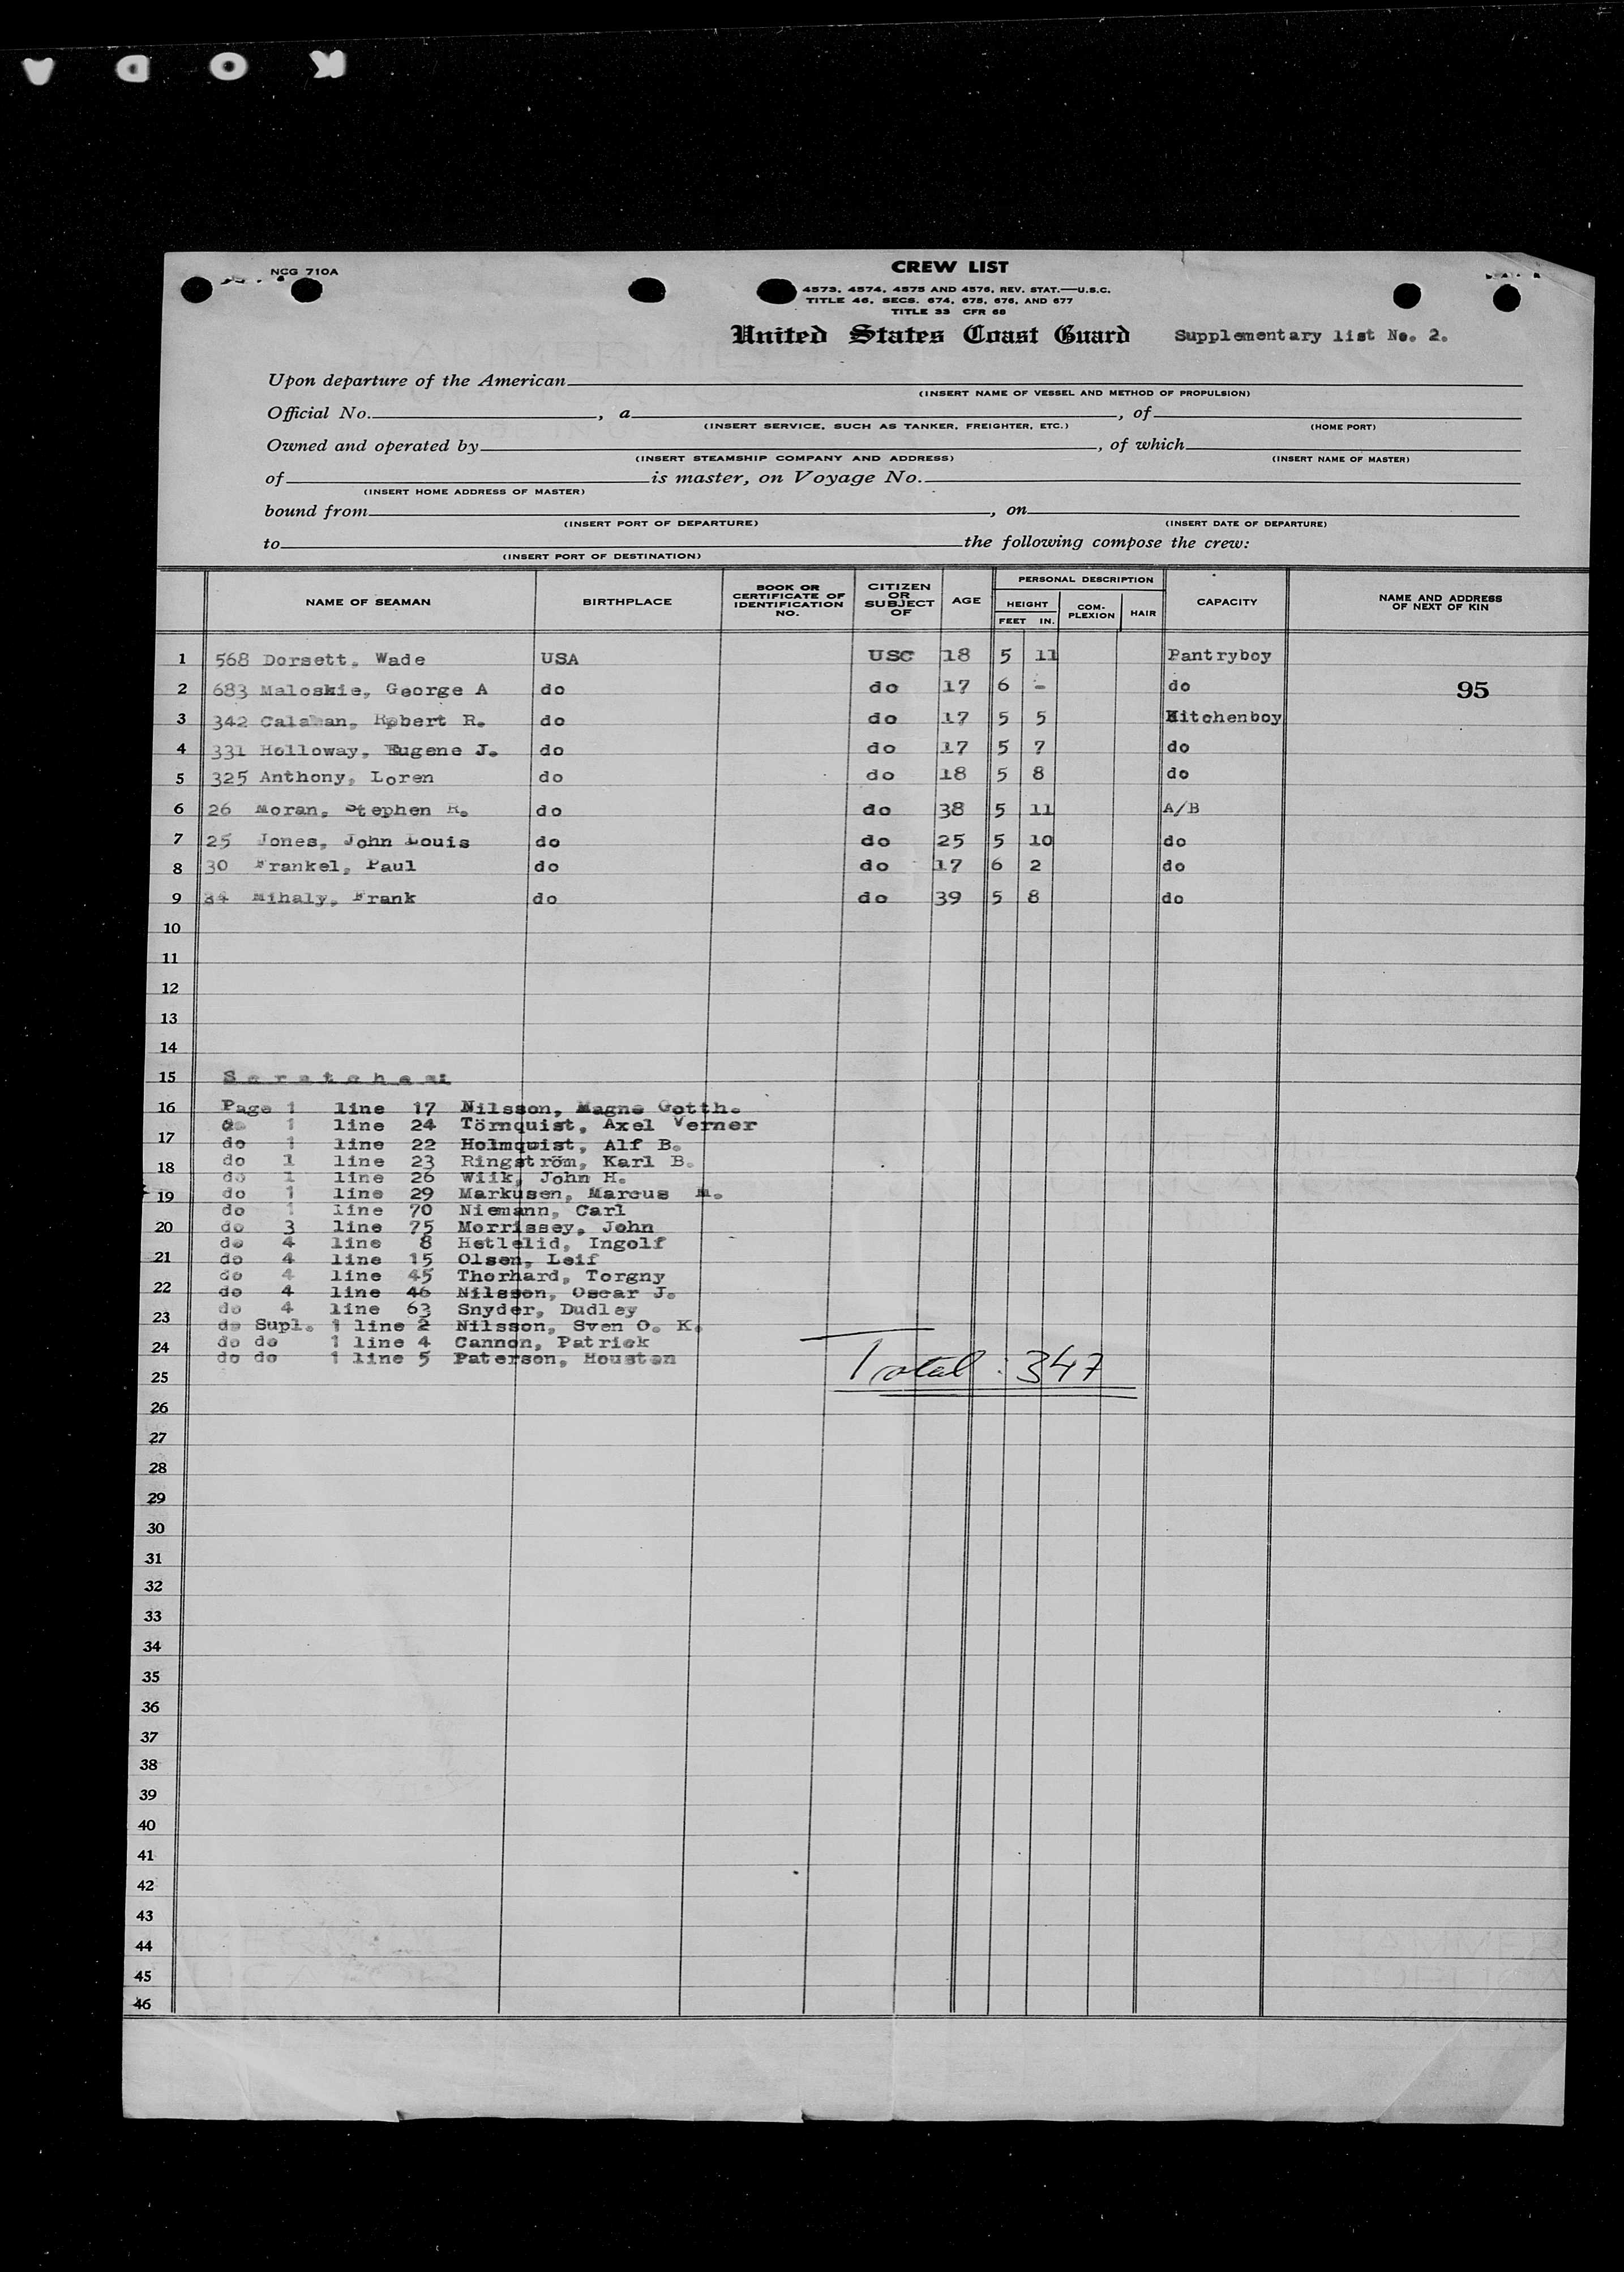 K O D A
NCG 710A
CREW LIST
4573, 4574, 4575 AND 4576, REV. STAT.—U.S.C.
TITLE 46, SECS. 674, 675, 676, AND 677
TITLE 33 CFR 68
United States Coast Guard Supplementary list No. 2.
Upon departure of the American
(INSERT NAME OF VESSEL AND METHOD OF PROPULSION)
Official No. , a , of
(INSERT SERVICE, SUCH AS TANKER, FREIGHTER, ETC.) (HOME PORT)
Owned and operated by , of which
(INSERT STEAMSHIP COMPANY AND ADDRESS) (INSERT NAME OF MASTER)
of is master, on Voyage No.
(INSERT HOME ADDRESS OF MASTER)
bound from , on
(INSERT PORT OF DEPARTURE) (INSERT DATE OF DEPARTURE)
to the following compose the crew:
(INSERT PORT OF DESTINATION)
NAME OF SEAMAN BIRTHPLACE BOOK OR CERTIFICATE OF IDENTIFICATION NO. CITIZEN OR SUBJECT OF AGE PERSONAL DESCRIPTION HEIGHT FEET IN. COM-PLEXION HAIR CAPACITY NAME AND ADDRESS OF NEXT OF KIN
1 568 Dorsett, Wade USA USC 18 5 11 Pantryboy
2 683 Maloskie, George A do do 17 6 - do 95
3 342 Calahan, Robert R. do do 17 5 5 Kitchenboy
4 331 Holloway, Eugene J. do do 17 5 7 do
5 325 Anthony, Loren do do 18 5 8 do
6 26 Moran, Stephen R. do do 38 5 11 A/B
7 25 Jones, John Louis do do 25 5 10 do
8 30 Frankel, Paul do do 17 6 2 do
9 34 Mihaly, Frank do do 39 5 8 do
10
11
12
13
14
15 Scratches:
16 Page 1 line 17 Nilsson, Magne Gotth.
do 1 line 24 Törnquist, Axel Verner
17 do 1 line 22 Holmquist, Alf B.
do 1 line 23 Ringström, Karl B.
18 do 1 line 26 Wiik, John H.
19 do 1 line 29 Markusen, Marcus M.
do 1 line 70 Niemann, Carl
20 do 3 line 75 Morrissey, John
do 4 line 8 Hetlelid, Ingolf
21 do 4 line 15 Olsen, Leif
do 4 line 45 Thorhard, Torgny
22 do 4 line 46 Nilsson, Oscar J.
do 4 line 63 Snyder, Dudley
23 do Supl. 1 line 2 Nilsson, Sven O. K.
24 do do 1 line 4 Cannon, Patrick
do do 1 line 5 Paterson, Houston
Total : 347
25
26
27
28
29
30
31
32
33
34
35
36
37
38
39
40
41
42
43
44
45
46